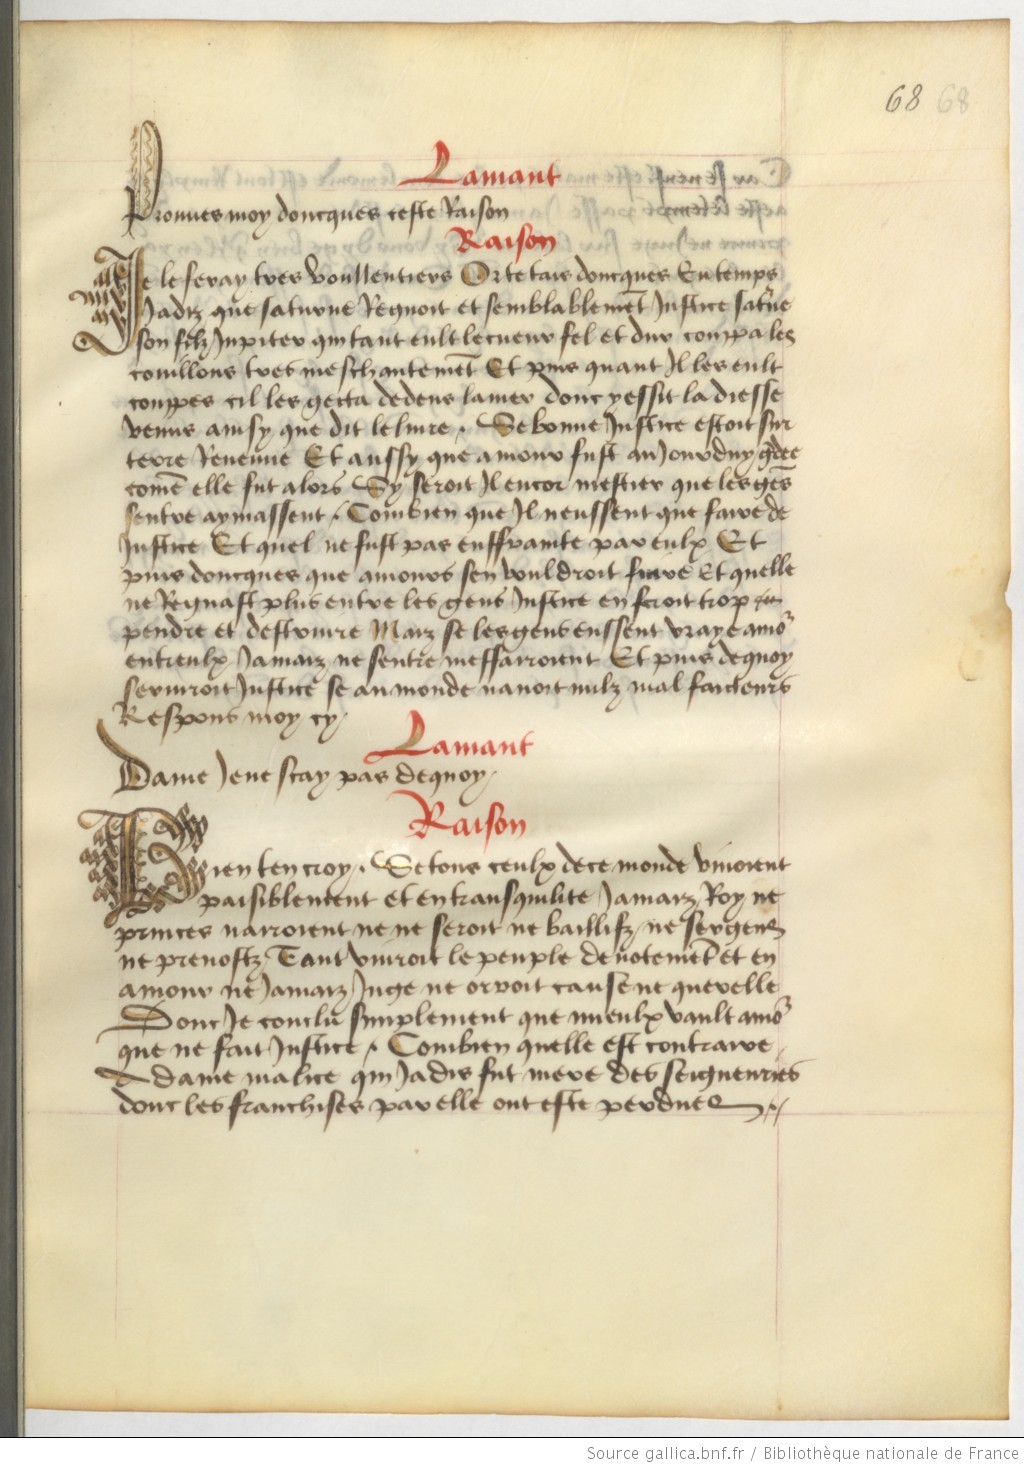 68 68
Lamant
Prouves moy doncques ceste Raison
Raison
Je le feray tres voullentiers Or te tais doncques En temps
Jadiz que saturne Regnoit et semblablemet Justice satne
son filz Jupiter qui tant eult le cueur fel et dur couppa les
couillons tres meschantemet Et puis quant Il les eult
couppes cil les gecta dedens la mer donc yessit la diesse
venus ainsy que dit le livre. Se bonne Justice estoit sur
terre Revenue Et aussy que amour fust au Jourduy gdee
come elle fut alors Sy seroit Il encor mestier que les ges
sentre aymassent. Combien que Il neussent que faire de
Justice Et quel ne fust pas enffrainte par eulx Et
puis doncques que amours sen vouldroit fuire Et quelle
ne Regnast plus entre les gens Justice en feroit trop
pendre et destruire Maiz se les gens eussent vraye amo
entreulx Jamaiz ne sentre meffairoient Et puis dequoy
serviroit Justice se au monde navoit nulz mal faicteurs
Respons moy cy
Lamant
Dame Je ne scay pas dequoy
Raison
Bien ten croy. Se tous ceulx de ce monde vivoient
paisiblement et en transquilite Jamaiz Roy ne
princes narroient ne ne seroit ne baillifz ne sergens
ne prevostz Tant vivroit le peuple devotemet et en
amour ne Jamaiz Juge ne orroit cause ne querelle
Donc Je conclu simplement que mieulx vault amo
que ne fait Justice. Combien quelle est contraire
A dame malice qui Jadis fut mere des seigneuries
donc les franchises par elle ont este perdues
Source gallica.bnf.fr / Bibliothèque nationale de France